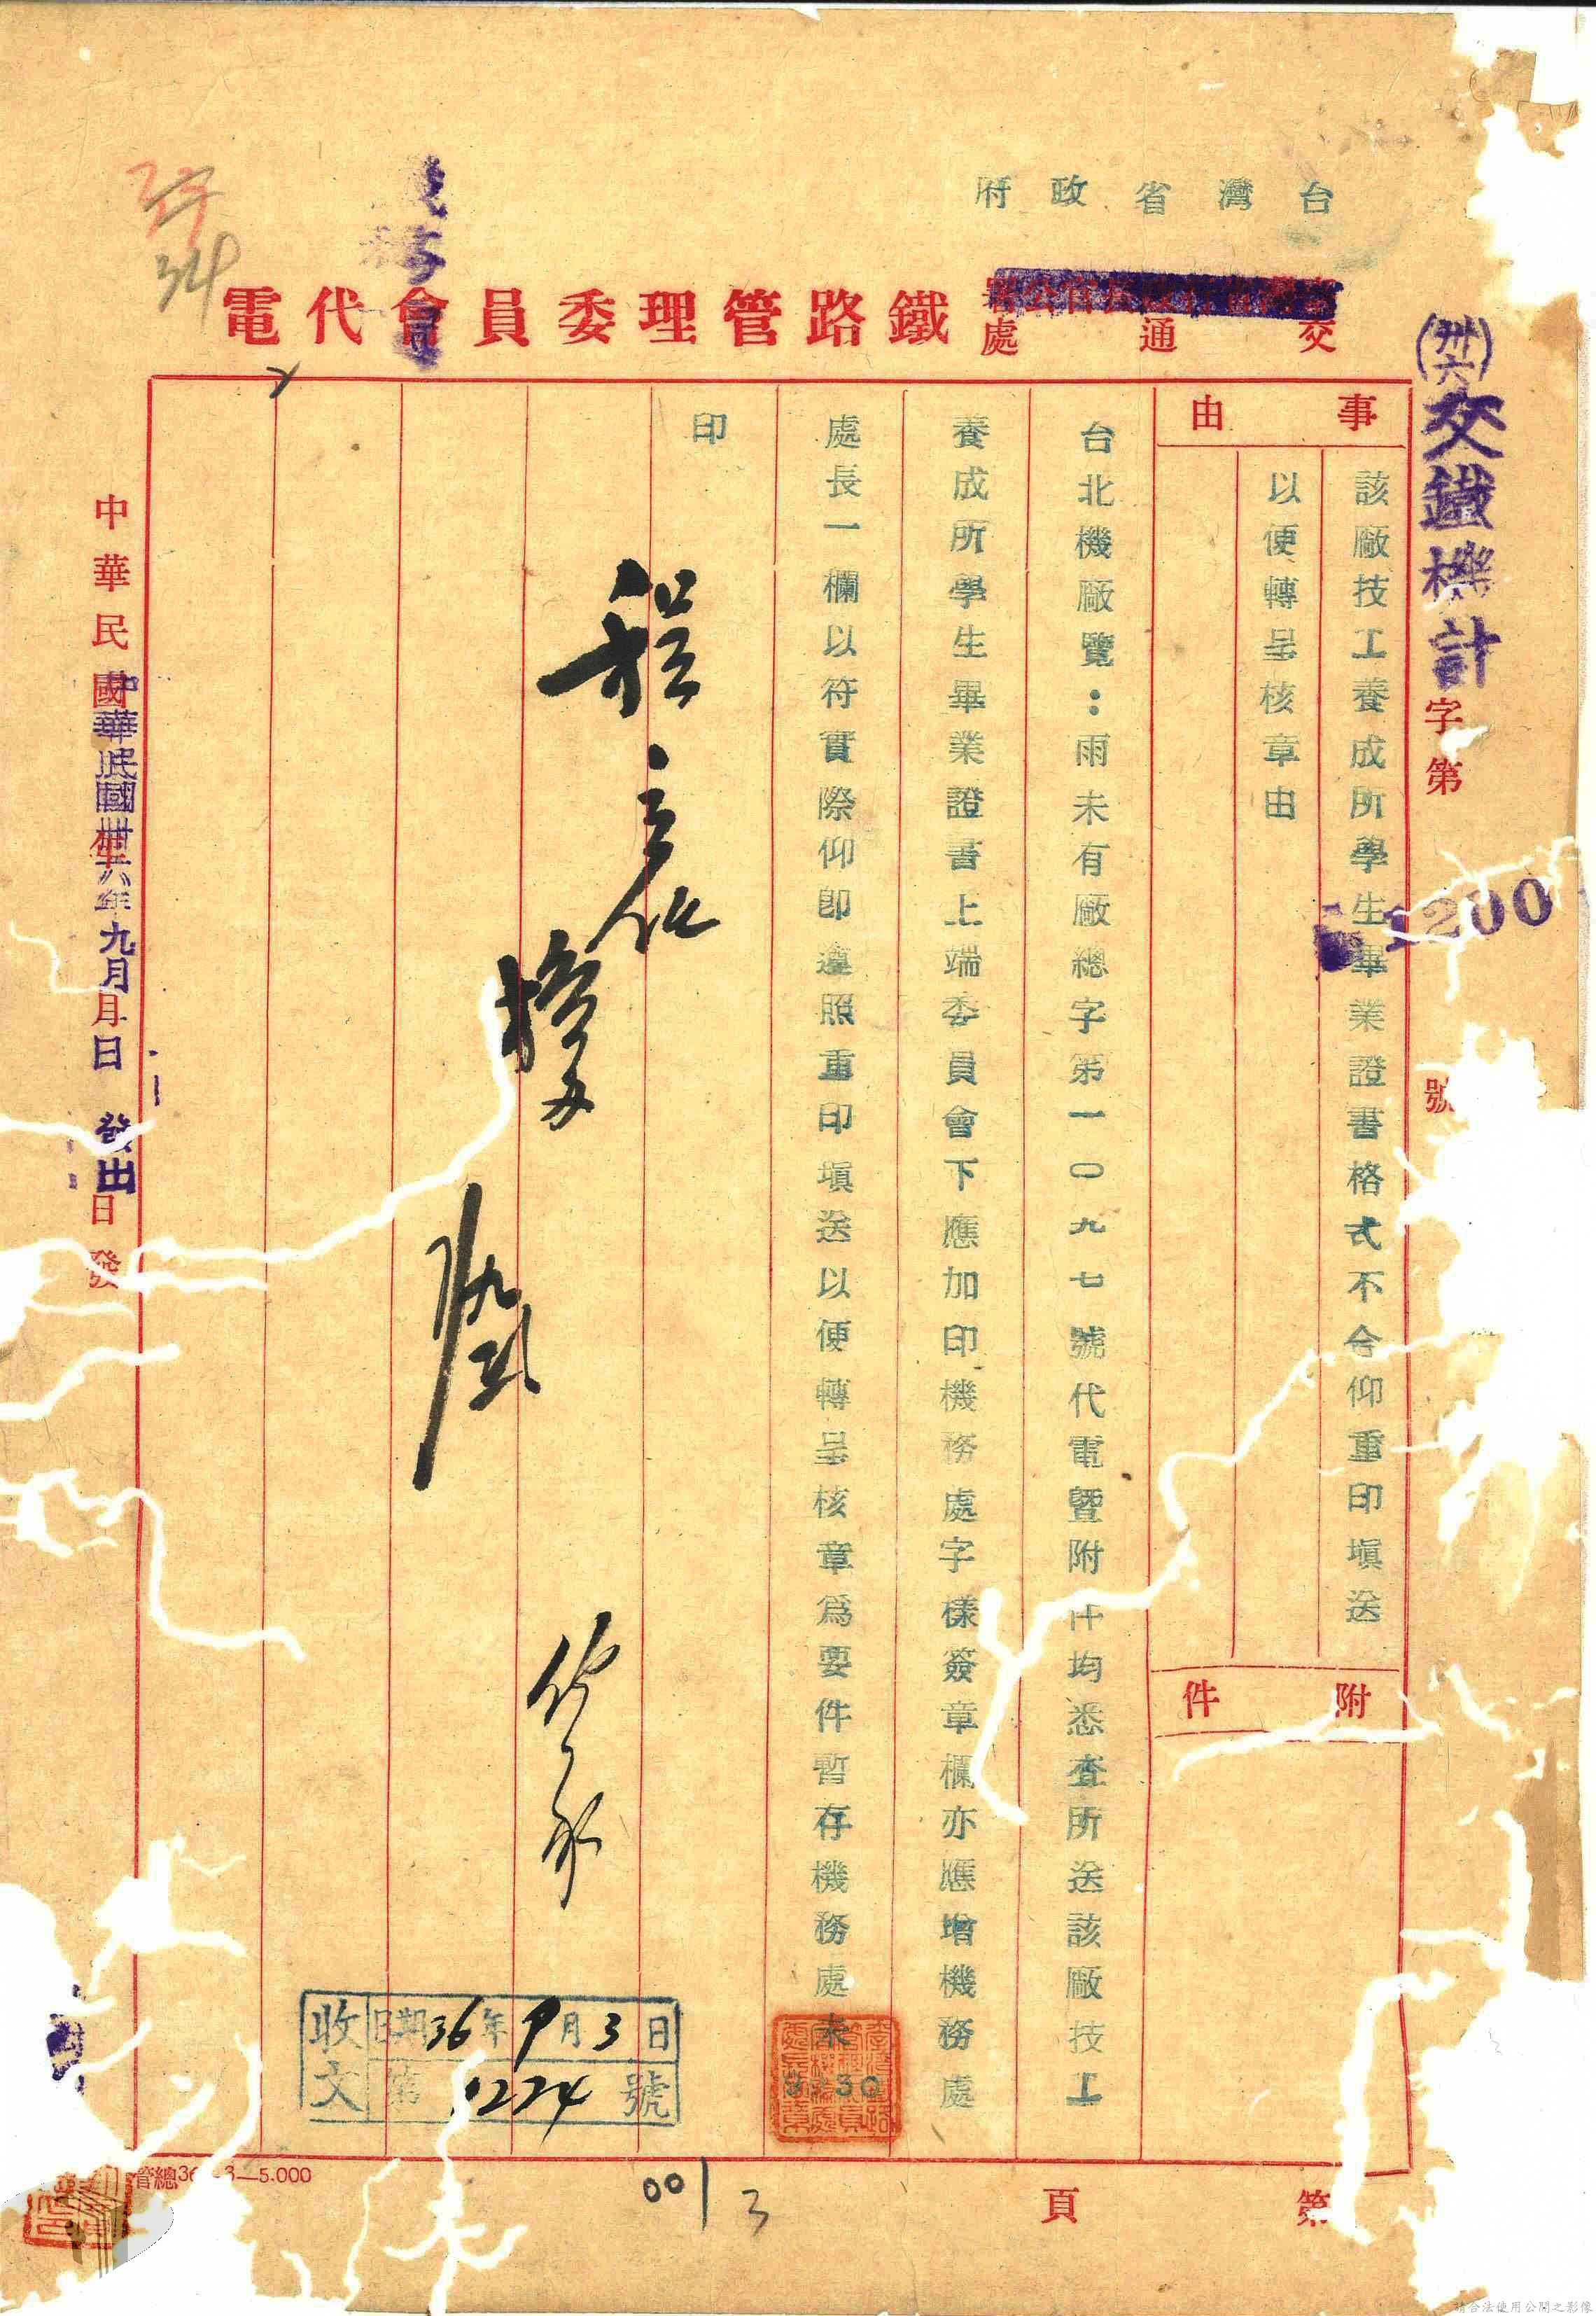 台灣省政府
交通處
鐵路管理委員會代電
(卅六)交鐵機計字第
200
號
事由
該廠技工養成所學生畢業證書格式不合仰重印塡送
以便轉呈核章由
附件
台北機廠覽：雨未有廠總字第一〇九七號代電暨附件均悉查所送該廠技工
養成所學生畢業證書上端委員會下應加印機務處字樣簽章欄亦應增機務處
處長一欄以符實際仰卽遵照重印塡送以便轉呈核章爲要件暫存機務處未
印
收文
日期36年9月3日
第1224號
中華民國
中華民國卅六年九月 日發出
年月日發
34
管總36
3—5.000
001
3
第頁
請合法使用公開之影像